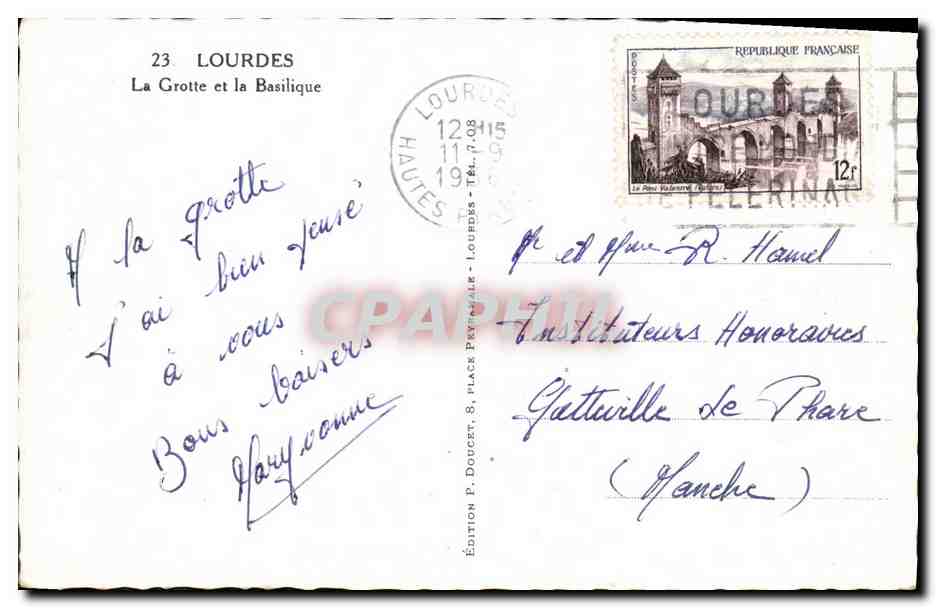 23 LOURDES
La Grotte et la Basilique
A la grotte
j'ai bien pensé
à vous
Bons baisers
Maryvonne
ÉDITION P. DOUCET, 8, PLACE PEYRAMALE - LOURDES - TÉL. 7.08
LOURDES
12 H 15
11 - 9
HAUTES
POSTES
REPUBLIQUE FRANÇAISE
12f
Le Pont Valentré (Cahors)
PELERINA
Mr et Mme R. Hamel
Instituteurs Honoraires
Gatteville Le Phare
(Manche)
CPAPHIL